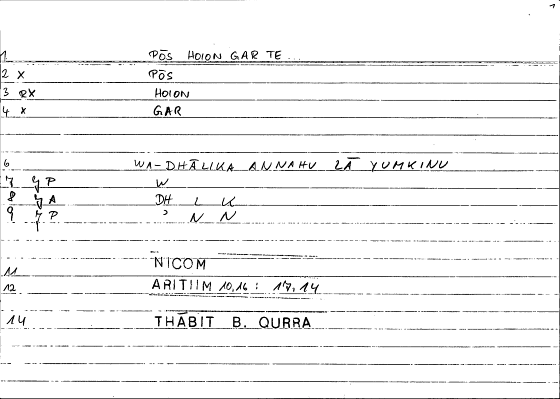 1 PŌS HOION GAR TE
2 X PŌS
3 RX HOION
4 X GAR
6 WA-DHĀLIKA ANNAHU LĀ YUMKINU
7 P W
8 A DH L K
9 P ʾ N N
11 NICOM
12 ARITIIM 10,16 : 17,14
14 THĀBIT B. QURRA